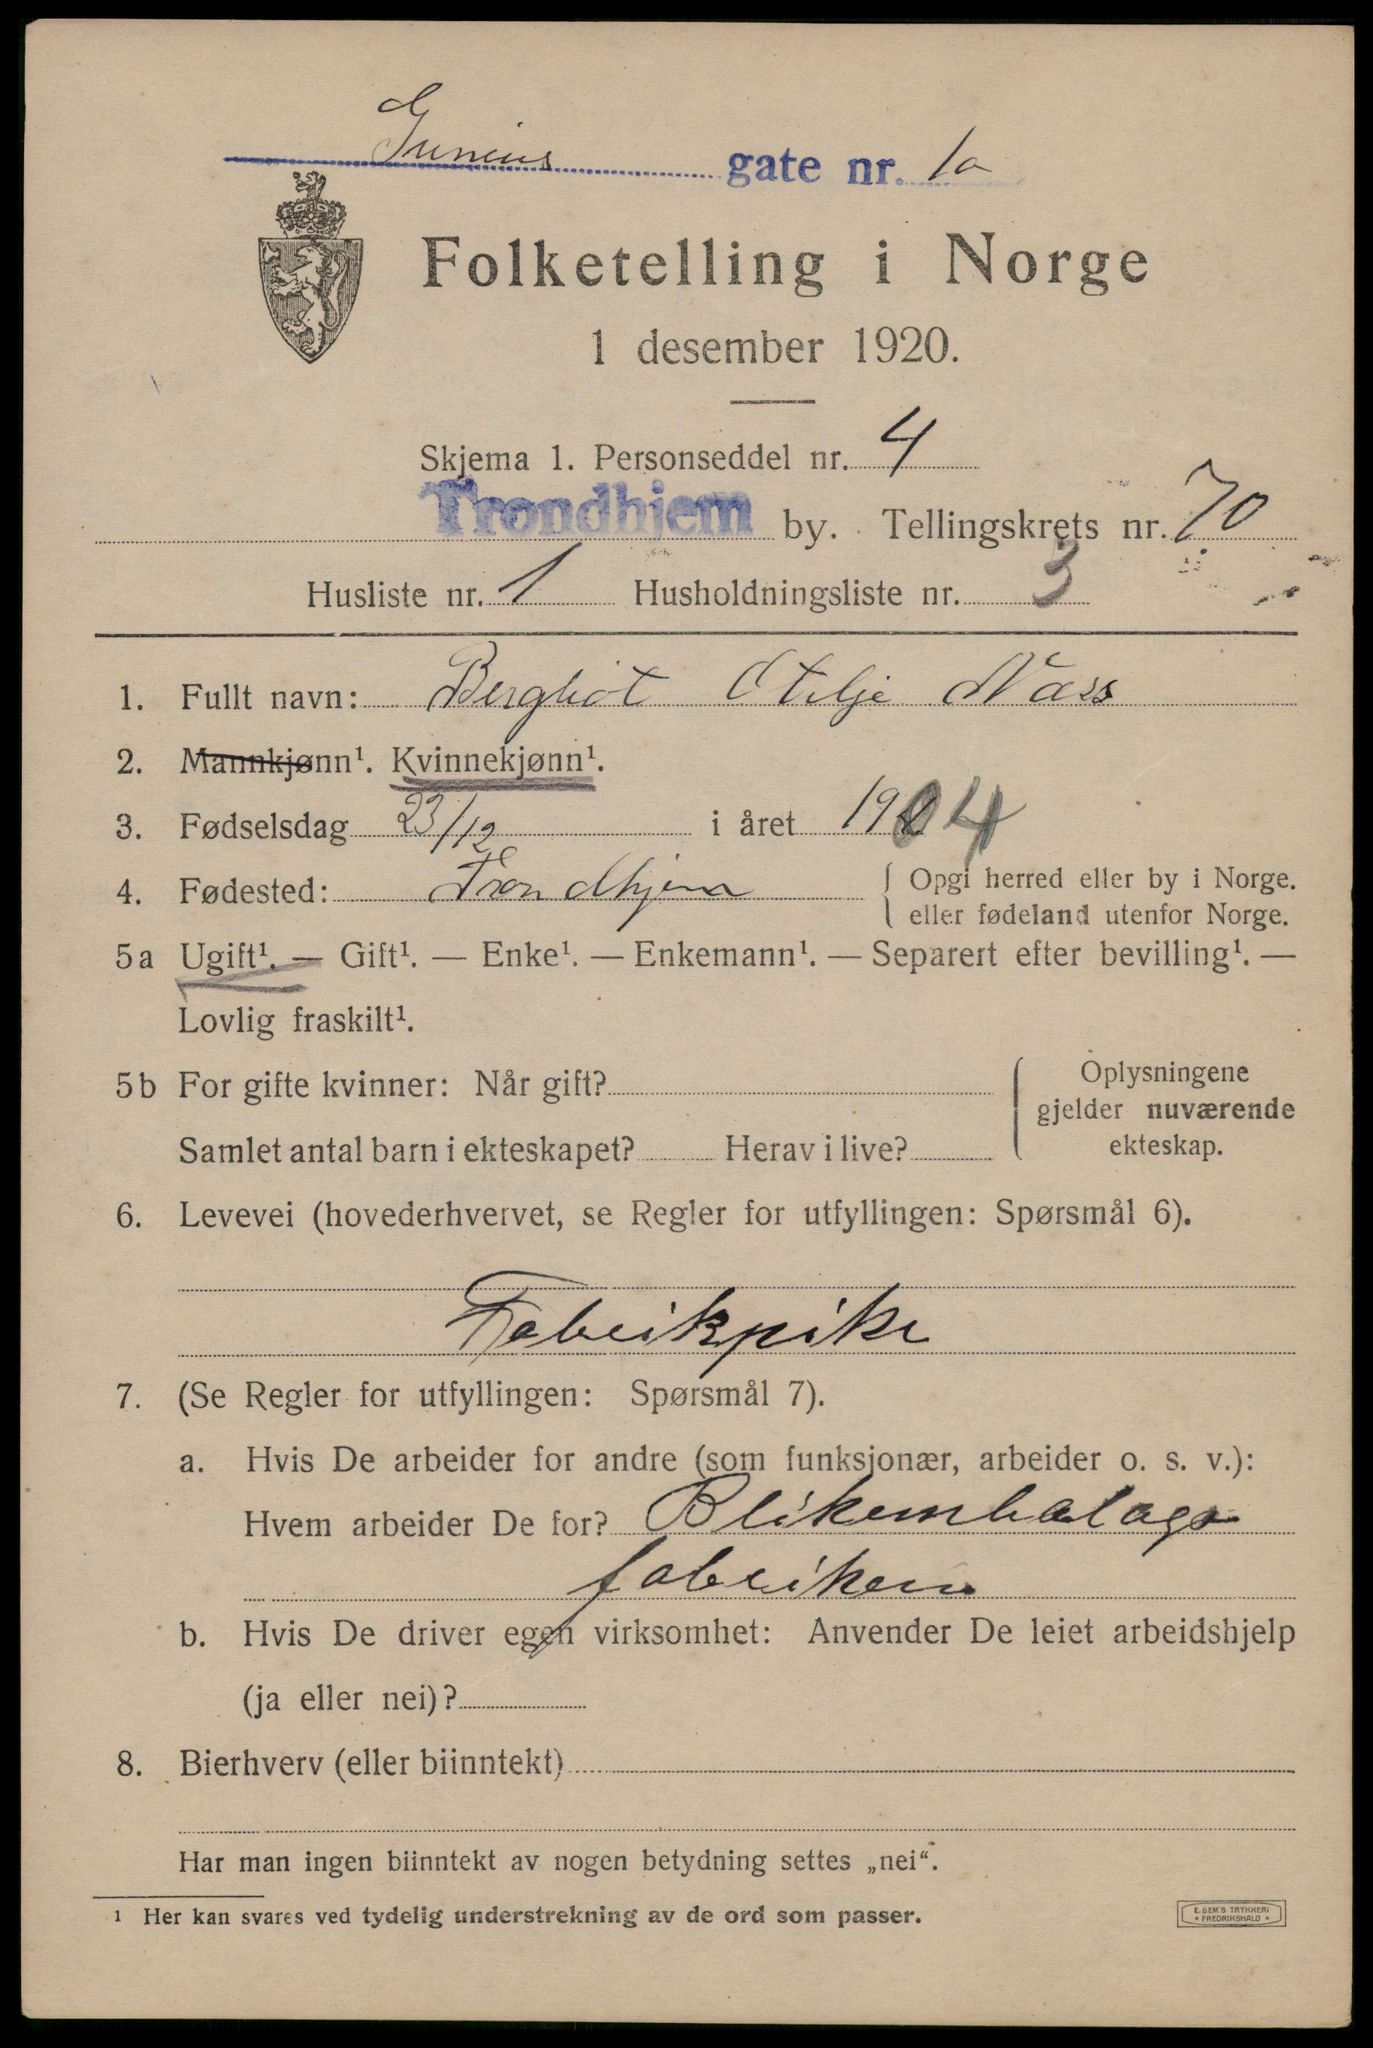 Gunerius gate nr. 1a
Folketelling i Norge
1 desember 1920.
Skjema 1. Personseddel nr. 4
Trondhjem by. Tellingskrets nr. 70
Husliste nr. 1 Husholdningsliste nr. 3
1. Fullt navn: Bergliot Otilje Næss
2. Mannkjønn¹. Kvinnekjønn¹.
3. Fødselsdag 23/12 i året 1904
4. Fødested: Trondhjem { Opgi herred eller by i Norge.
eller fødeland utenfor Norge.
5a Ugift¹. — Gift¹. — Enke¹. — Enkemann¹. — Separert efter bevilling¹. —
Lovlig fraskilt¹.
5b For gifte kvinner: Når gift?
Samlet antal barn i ekteskapet? Herav i live?
Oplysningene
gjelder nuværende
ekteskap.
6. Levevei (hovederhvervet, se Regler for utfyllingen: Spørsmål 6).
Fabrikpike
7. (Se Regler for utfyllingen: Spørsmål 7).
a. Hvis De arbeider for andre (som funksjonær, arbeider o. s. v.):
Hvem arbeider De for? Blikembalage
fabriken
b. Hvis De driver egen virksomhet: Anvender De leiet arbeidshjelp
(ja eller nei)?
8. Bierhverv (eller biinntekt)
Har man ingen biinntekt av nogen betydning settes „nei“.
¹ Her kan svares ved tydelig understrekning av de ord som passer.
E. SEM'S TRYKKERI
FREDRIKSHALD